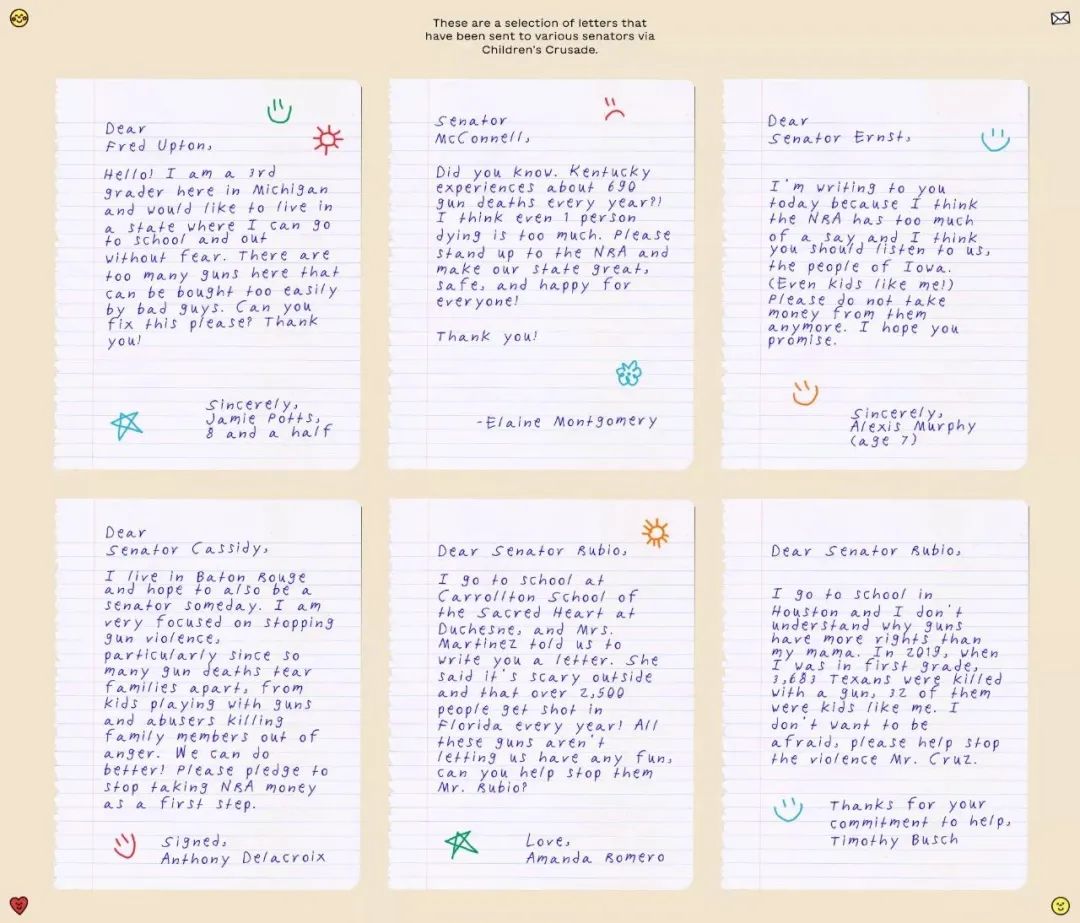 These are a selection of letters that
have been sent to various senators via
Children's Crusade.
Dear
Fred Upton,
Hello! I am a 3rd
grader here in Michigan
and would like to live in
a state where I can go
to school and out
without fear. There are
too many guns here that
can be bought too easily
by bad guys. Can you
fix this please? Thank
you!
Sincerely,
Jamie Potts,
8 and a half
Senator
McConnell,
Did you know. Kentucky
experiences about 690
gun deaths every year?!
I think even 1 person
dying is too much. Please
stand up to the NRA and
make our state great,
safe, and happy for
everyone!
Thank you!
-Elaine Montgomery
Dear
Senator Ernst,
I'm writing to you
today because I think
the NRA has too much
of a say and I think
you should listen to us,
the people of Iowa.
(Even kids like me!)
Please do not take
money from them
anymore. I hope you
promise.
Sincerely,
Alexis Murphy
(age 7)
Dear
Senator Cassidy,
I live in Baton Rouge
and hope to also be a
senator someday. I am
very focused on stopping
gun violence,
particularly since so
many gun deaths tear
families apart, from
kids playing with guns
and abusers killing
family members out of
anger. We can do
better! Please pledge to
stop taking NRA money
as a first step.
Signed,
Anthony Delacroix
Dear Senator Rubio,
I go to school at
Carrollton School of
the Sacred Heart at
Duchesne, and Mrs.
Martinez told us to
write you a letter. She
said it's scary outside
and that over 2,500
people get shot in
Florida every year! All
these guns aren't
letting us have any fun,
can you help stop them
Mr. Rubio?
Love,
Amanda Romero
Dear Senator Rubio,
I go to school in
Houston and I don't
understand why guns
have more rights than
my mama. In 2019, when
I was in first grade,
3,683 Texans were killed
with a gun, 32 of them
were kids like me. I
don't want to be
afraid, please help stop
the violence Mr. Cruz.
Thanks for your
commitment to help,
Timothy Busch